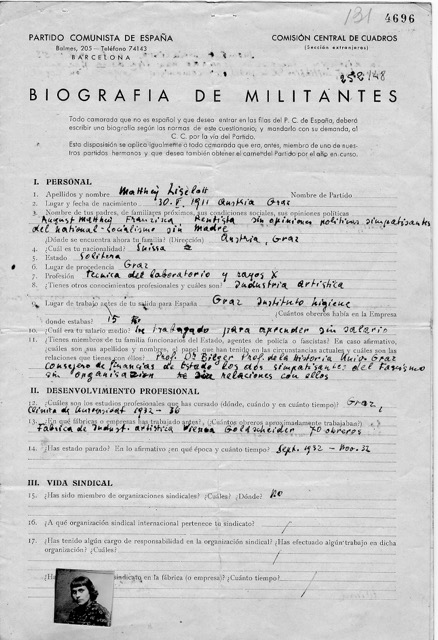 131 4696
PARTIDO COMUNISTA DE ESPAÑA
COMISIÓN CENTRAL DE CUADROS
Balmes, 205 - Teléfono 74143
(Sección extranjeros)
BARCELONA
BIOGRAFIA DE MILITANTES
Todo camarada que no es español y que desea entrar en las filas del P. C. de España, deberá
escribir una biografía según las normas de este cuestionario, y mandarlo con su demanda, al
C. C. por la vía del Partido.
Esta disposición se aplica igualmente a todo camarada que era, antes, miembro de uno de
nuestros partidos hermanos y que desea también obtener el carnet del Partido por el año en curso.
I. PERSONAL
1. Apellidos y nombre Matthey Liselott Nombre de Partido
2. Lugar y fecha de nacimiento 30. 1911 Austria Graz
3. Nombre de tus padres, de familiares próximos, sus condiciones sociales, sus opiniones políticas
August Matthey Francisca Rentista sin opiniones politicas simpatisantes
del national-socialismo sin madre
¿Dónde se encuentra ahora tu familia? (Dirección) Austria, Graz
4. ¿Cuál es tu nacionalidad? Suissa
5. Estado Soltera
6. Lugar de procedencia Graz
7. Profesión Tecnica del laboratorio y rayos X
8. ¿Tienes otros conocimientos profesionales y cuáles son? Industria Artistica
9. Lugar de trabajo antes de tu salida para España Graz Instituto higiene
¿Cuántos obreros había en la Empresa
donde estabas? 15
10. ¿Cuál era tu salario medio? he trabajado para aprender sin salario
11. ¿Tienes miembros de tu familia funcionarios del Estado, agentes de policía o fascistas? En caso afirmativo,
¿cuáles son sus apellidos y nombres, el papel que han tenido en las circunstancias actuales y cuáles son las
relaciones que tienes con ellos? Prof. Dr Bilger Prof. de la historia Univ. Graz
Consejero de financias de Estado los dos simpatisantes del fascismo
sin organisation relaciones con ellos
II. DESENVOLVIMIENTO PROFESIONAL
12. ¿Cuáles son los estudios profesionales que has cursado (dónde, cuándo y en cuánto tiempo)? Graz,
Clinica de Universidat 1932-36
13. ¿En qué fábricas o empresas has trabajado antes? ¿Cuántos obreros aproximadamente trabajaban?
Fabrica de Indust. artistica Vienna Goldscheider 70 obreros
14. ¿Has estado parado? En lo afirmativo ¿en qué época y cuánto tiempo? Sept. 1932 - Nov. 32
III. VIDA SINDICAL
15. ¿Has sido miembro de organizaciones sindicales? ¿Cuáles? ¿Dónde? No
16. ¿A qué organización sindical internacional pertenece tu sindicato?
17. ¿Has tenido algún cargo de responsabilidad en la organización sindical? ¿Has efectuado algún trabajo en dicha
organización? ¿Cuáles?
sindicato en la fábrica (o empresa)? ¿Cuánto tiempo?